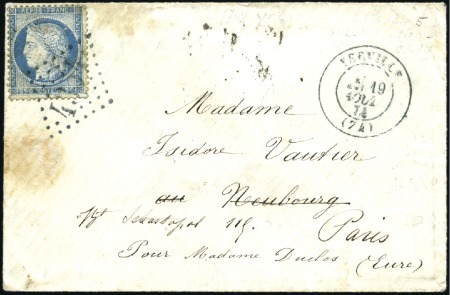 REPUB. FRANC.
25 C POSTES 25 C
5
YERVILLE
19
AOUT
74
(74)
Madame
Isidore Vautier
au Neubourg
Bt Sebastopol 119.
Paris
Pour Madame Duclos (Eure)